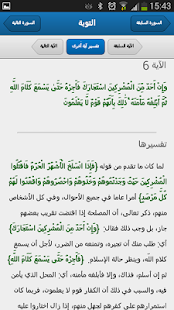 15:43
السورة السابقة
التوبة
السورة التالية
الآية السابقة
تفسير آية أخرى
الآية التالية
الآية 6
وَإِنْ أَحَدٌ مِنَ الْمُشْرِكِينَ اسْتَجَارَكَ فَأَجِرْهُ حَتَّى يَسْمَعَ كَلَامَ اللَّهِ
ثُمَّ أَبْلِغْهُ مَأْمَنَهُ ذَلِكَ بِأَنَّهُمْ قَوْمٌ لَا يَعْلَمُونَ
تفسيرها
لما كان ما تقدم من قوله {فَإِذَا انْسَلَخَ الْأَشْهُرُ الْحُرُمُ فَاقْتُلُوا
الْمُشْرِكِينَ حَيْثُ وَجَدْتُمُوهُمْ وَخُذُوهُمْ وَاحْصُرُوهُمْ وَاقْعُدُوا لَهُمْ
كُلَّ مَرْصَدٍ} أمرا عاما في جميع الأحوال، وفي كل الأشخاص
منهم، ذكر تعالى، أن المصلحة إذا اقتضت تقريب بعضهم
جاز، بل وجب ذلك فقال: {وَإِنْ أَحَدٌ مِنَ الْمُشْرِكِينَ اسْتَجَارَكَ}
أي: طلب منك أن تجيره، وتمنعه من الضرر، لأجل أن يسمع
كلام اللّه، وينظر حالة الإسلام. {فَأَجِرْهُ حَتَّى يَسْمَعَ كَلَامَ اللَّهِ}
ثم إن أسلم، فذاك، وإلا فأبلغه مأمنه، أي: المحل الذي يأمن
فيه، والسبب في ذلك أن الكفار قوم لا يعلمون، فربما كان
استمرارهم على كفرهم لجهل منهم، إذا زال اختاروا عليه